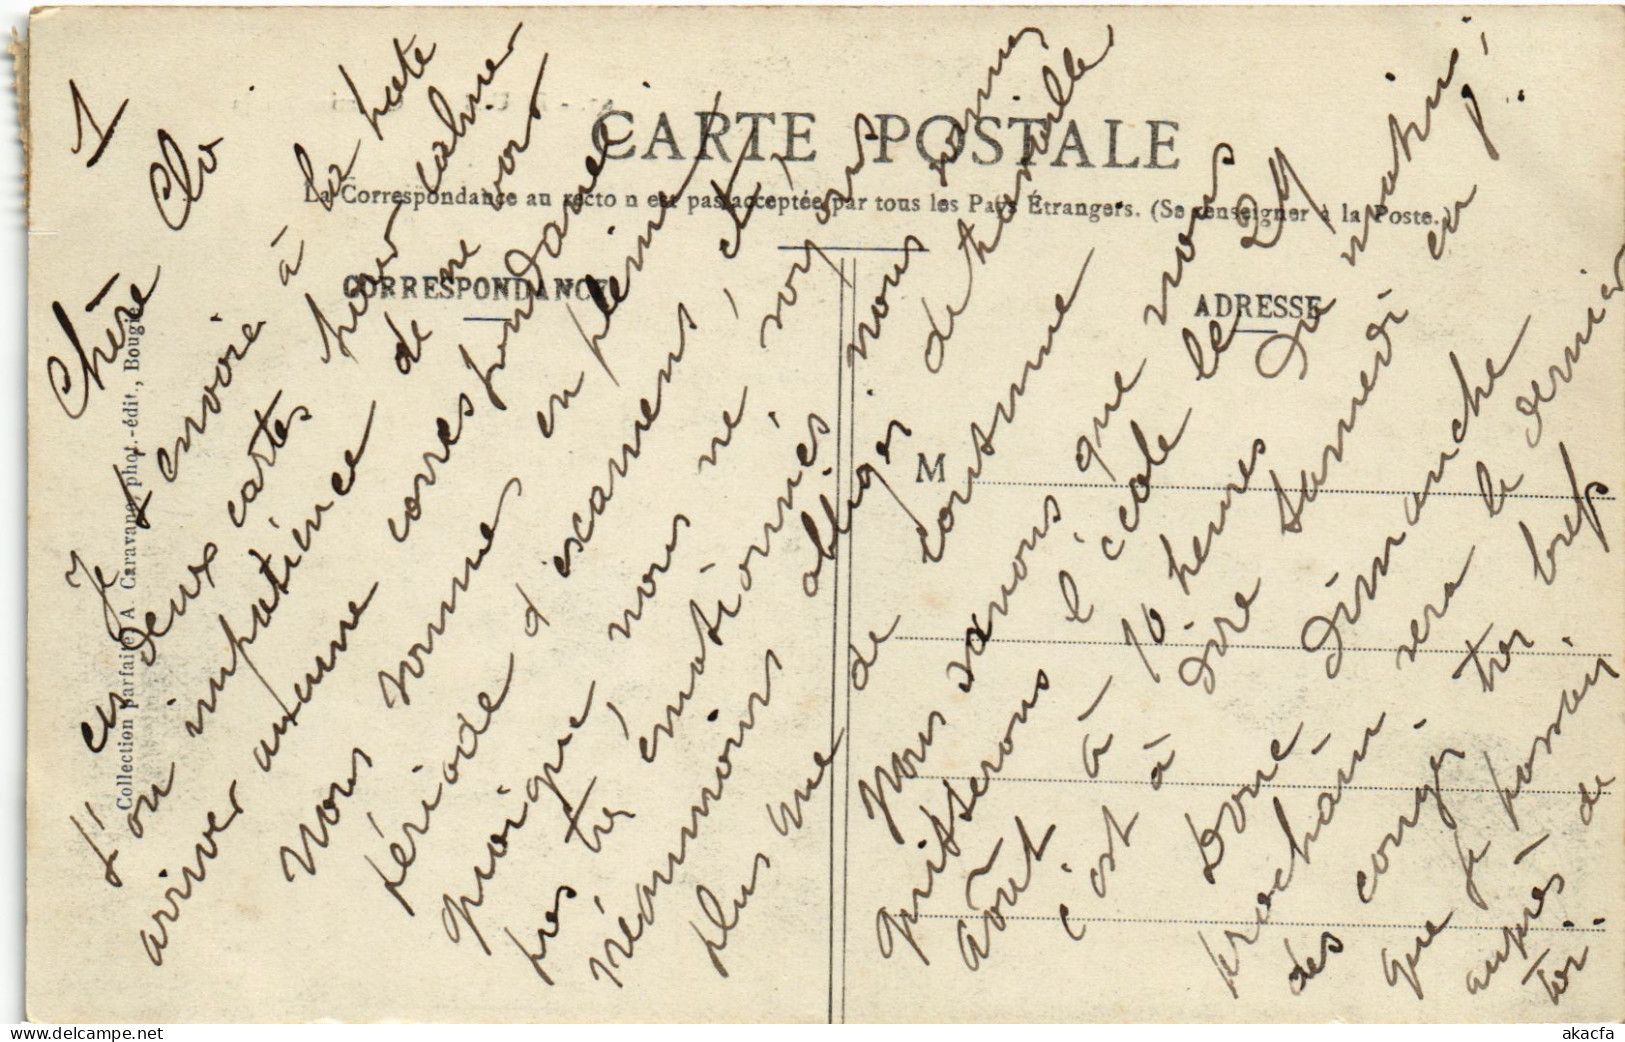 1
Chère Clo
Je t'envoie à la hâte
ces deux cartes pour calmer
l'on impatience de ne voir
arriver aucune correspondance
Nous sommes en pleine
période d'examens, et,
quoique nous ne soyons
pas très émotionnés nous sommes
néanmoins obligés de travailler
plus que de coutume
Nous savons que nous
quitterons l'école le 29
août à 10 heures du matin;
c'est à dire samedi en 8.
Donc dimanche
prochain sera le dernier
des congés très brefs
que je passai
auprès de
toi.
CARTE POSTALE
La Correspondance au recto n est pas acceptée par tous les Pays Étrangers. (Se renseigner à la Poste.)
CORRESPONDANCE
ADRESSE
M
Collection parfaite, A Caravano phot.-édit., Bougie
akacfa